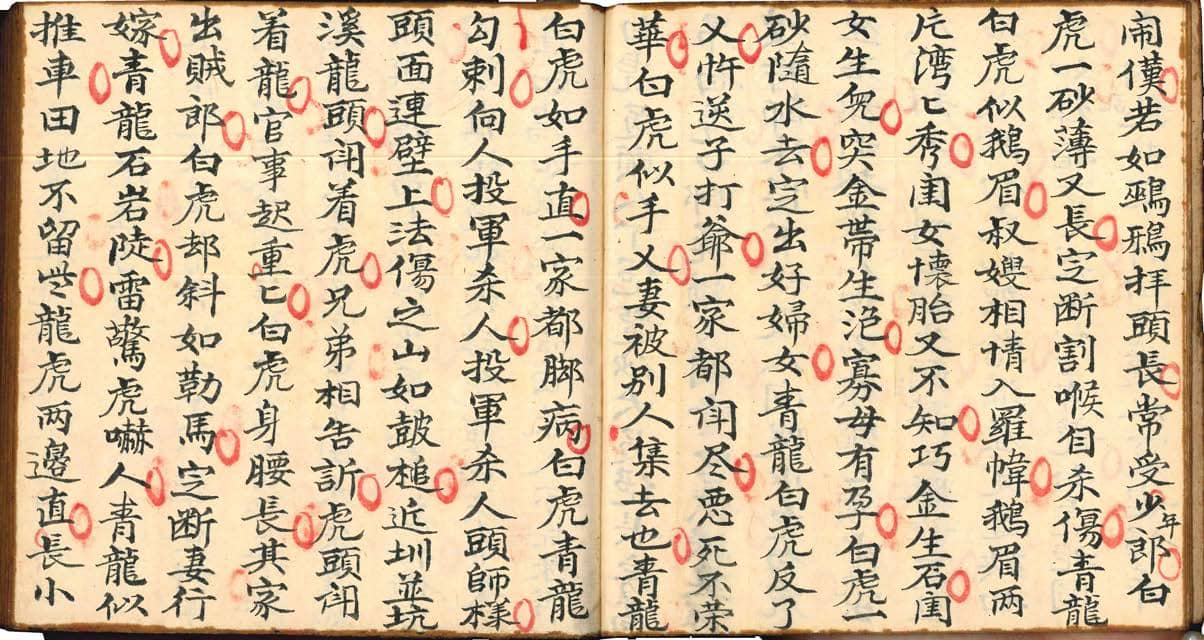 闹僕若如鵶鴉拜頭長常受少年郎白
虎一砂薄又長定断割喉自杀傷青龍
白虎似鵝眉叔嫂相情入羅幃鵝眉两
片湾匕秀闺女懷胎又不知巧金生石闺
女生兜突金帶生浥寡母有孕白虎一
砂隨水去定出好婦女青龍白虎反了
乂忤送子打爺一家都闹尽悪死不荣
華白虎似手乂妻被别人集去也青龍
白虎如手直一家都脚病白虎青龍
勾刺向人投軍杀人投軍杀人頭師樣
頭面連壁上法傷之山如皷槌近圳並坑
溪龍頭闹着虎兄弟相告訴虎頭闹
着龍官事起重匕白虎身腰長其家
出賊郎白虎却斜如勒馬定断妻行
嫁青龍石岩陡雷驚虎嚇人青龍似
推車田地不留些龍虎两邉直長小